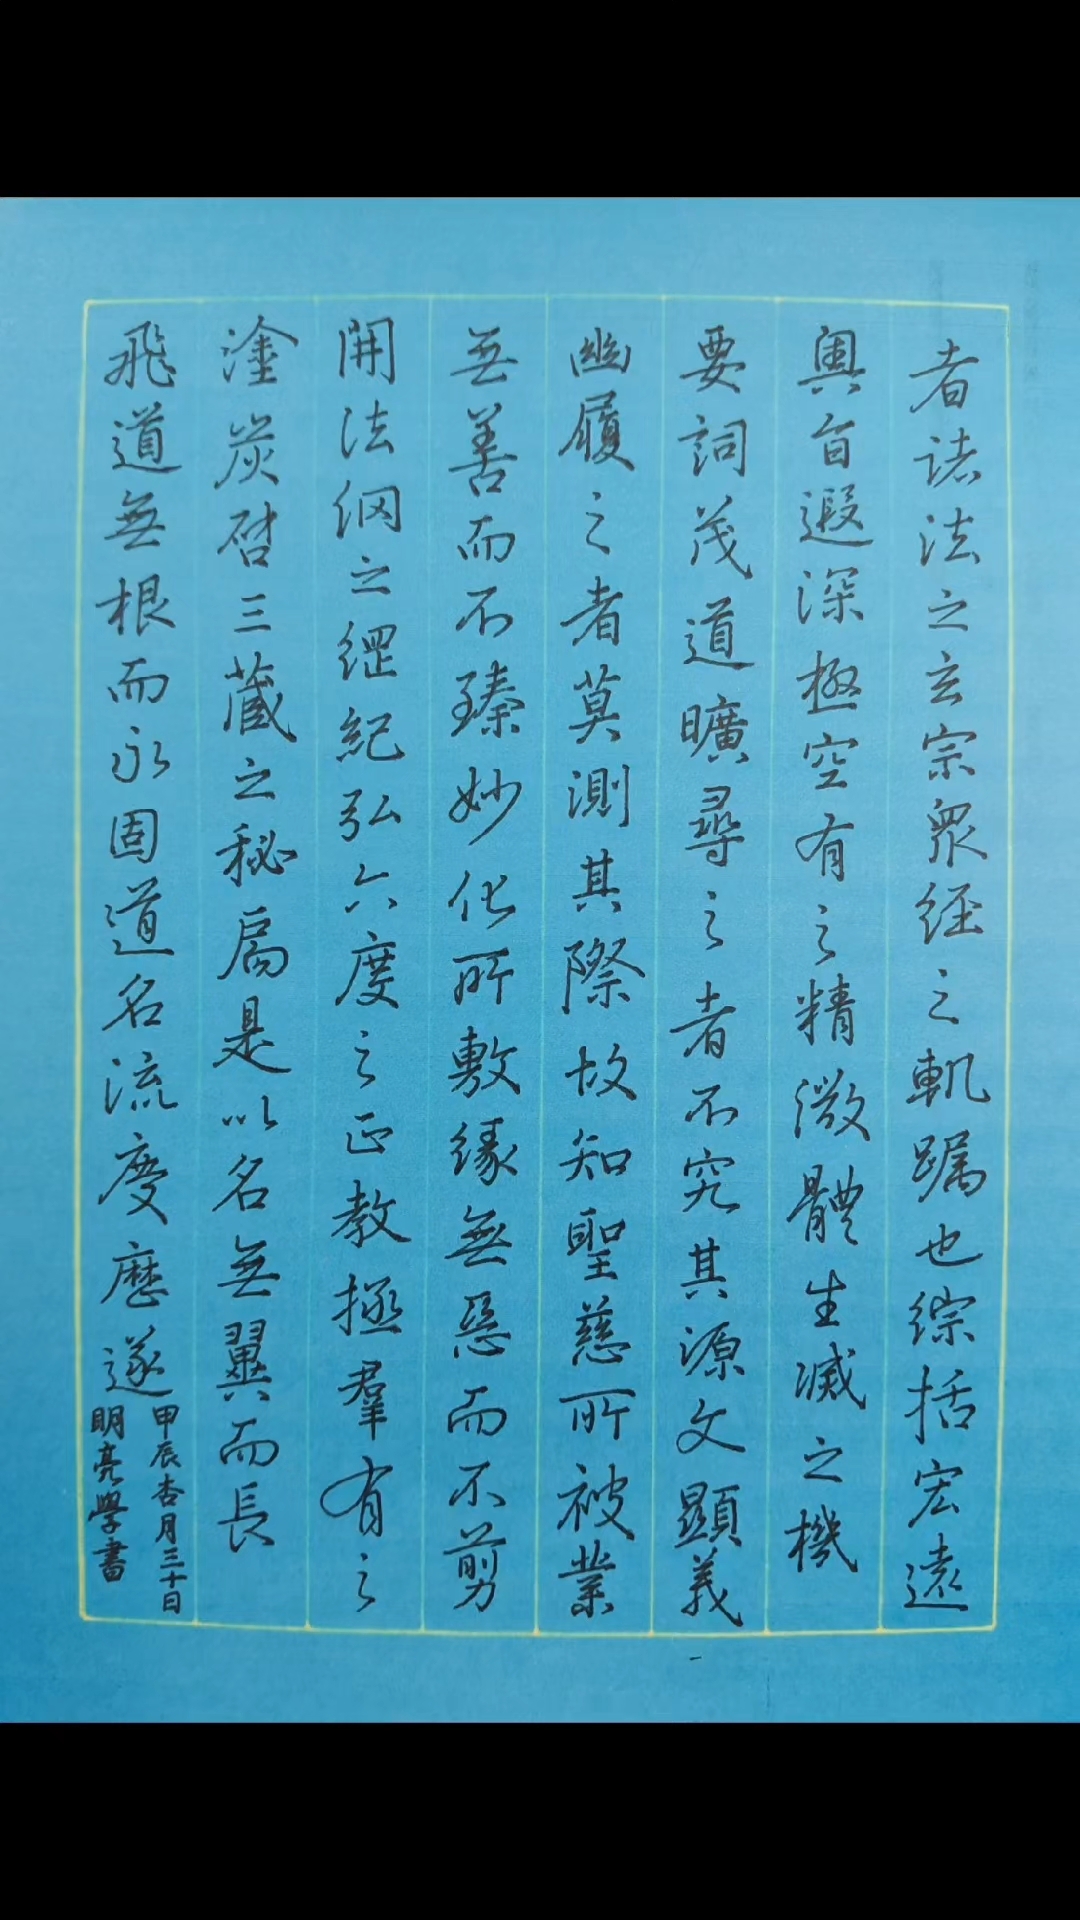 者諸法之玄宗衆經之軌躅也綜括宏遠
奧旨遐深極空有之精微體生滅之機
要詞茂道曠尋之者不究其源文顯義
幽履之者莫測其際故知聖慈所被業
無善而不臻妙化所敷緣無惡而不剪
開法網之綱紀弘六度之正教拯羣有之
塗炭啓三藏之秘扃是以名無翼而長
飛道無根而永固道名流慶歷遂
甲辰杏月三十日
明亮學書